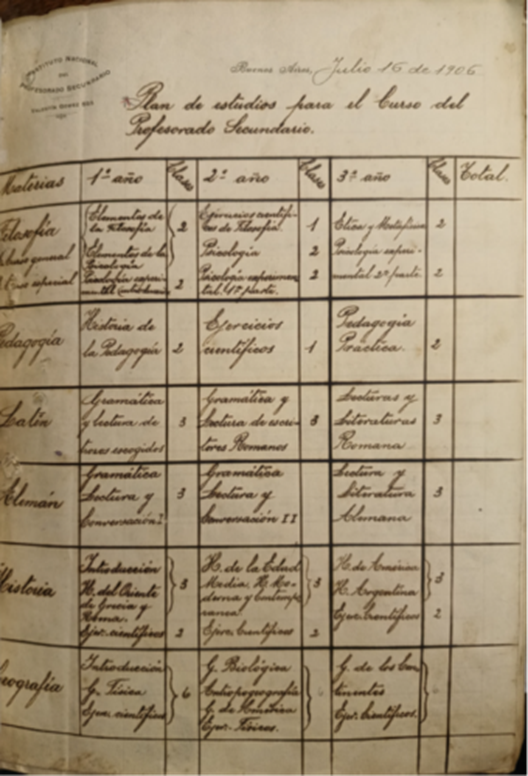 INSTITUTO NACIONAL
DEL
PROFESORADO SECUNDARIO
Buenos Aires, Julio 16 de 1906
Plan de estudios para el Curso del
Profesorado Secundario.
Materias 1º año clases 2º año clases 3º año clases Total.
Filosofía
Curso general
Curso especial
Elementos de
la Filosofía
Elementos de la
Psicología
2
2
Ejercicios científi-
cos de Filosofía. 1
Psicología 2
Psicología experimen-
tal. 1ª parte. 2
Etica y Metafísica 2
Psicología experi-
mental 2ª parte. 2
Pedagogía
Historia de
la Pedagogía 2
Ejercicios
científicos 1
Pedagogía
Práctica. 2
Latín
Gramática
y lectura de
tores escogidos
3
Gramática y
Lectura de escri-
tores Romanos
3
Lecturas y
Literaturas
Romana
3
Alemán
Gramática
Lectura y
Conversación I
3
Gramática
Lectura y
Conversación II
Lectura y
Literatura
Alemana
3
Historia
Introducción
H. del Oriente
de Grecia y
Roma.
3
Ejer. científicos 2
H. de la Edad
Media. H. Mo-
derna y Contempo-
ranea
3
Ejerc. Científicos 2
H. de América
H. Argentina
3
Ejer. Científicos 2
Geografía
Introducción
G. Física
Ejer. científicos
6
G. Biológica
Antropogeografía
G. de América
Ejer. Físicos.
G. de los Con
tinentes
Ejer. Científicos.